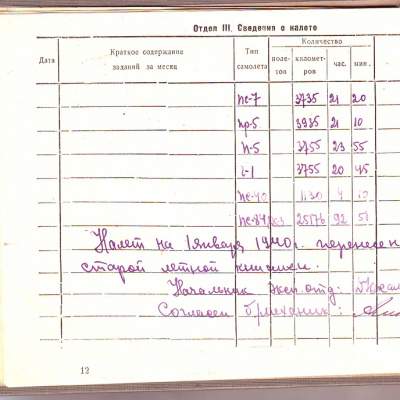 Отдел III. Сведения о налете
Дата Краткое содержание заданий за месяц Тип самолета Количество
поле-тов километ-ров час. мин.
ПС-7 3735 21 20
Пр-5 3935 21 10
П-5 3755 23 55
С-1 3755 20 45
ПС-40 1130 4 10
ПС-84 25176 92 51
Налет на 1 января 1940 г. перенесен
старой летной книжки.
Начальник Эксп. отд:
Согласен б/механик:
12